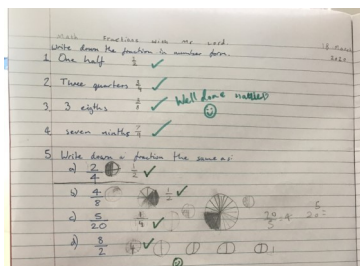 Math Fractions with Mr Lord
18 March
2020
Write down the fraction in number form.
1 One half 1/2
2 Three quarters 3/4
3 3 eigths 3/8
Well done
4 seven ninths 7/9
5 Write down a fraction the same as:
a) 2/4 1/2
b) 4/8 1/2
c) 5/20 1/4
d) 8/2 4